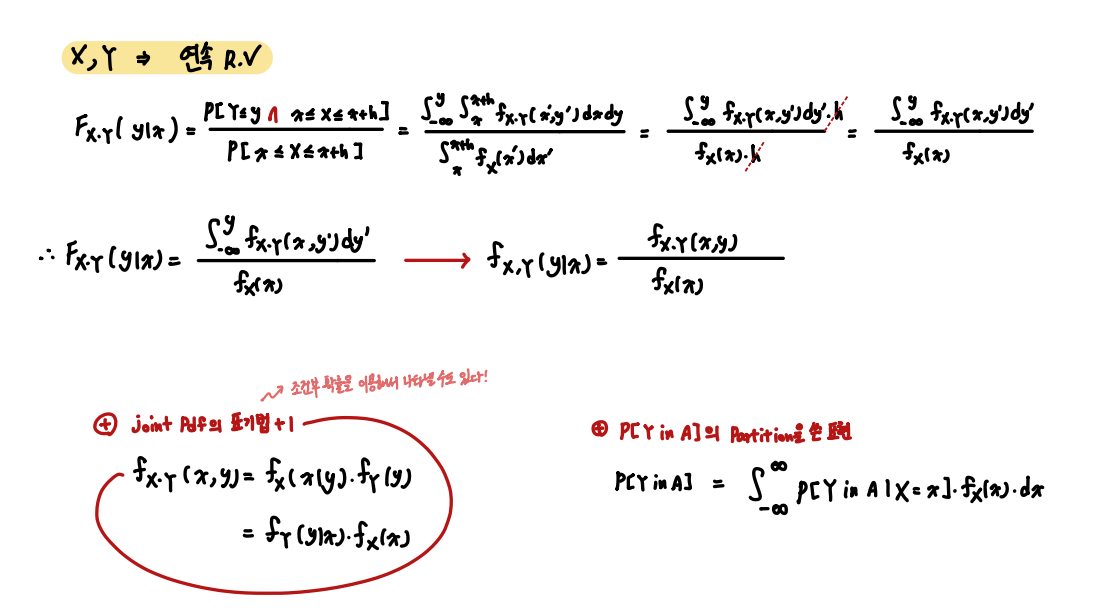 X, Y ⇒ 연속 R.V
F_{X·Y}(y|x) = P[Y≤y ∩ x≤X≤x+h] / P[x≤X≤x+h] = ∫_{-∞}^{y} ∫_{x}^{x+h} f_{X·Y}(x',y')dxdy / ∫_{x}^{x+h} f_X(x')dx' = ∫_{-∞}^{y} f_{X·Y}(x,y')dy'·h / f_X(x)·h = ∫_{-∞}^{y} f_{X·Y}(x,y')dy' / f_X(x)
∴ F_{X·Y}(y|x) = ∫_{-∞}^{y} f_{X·Y}(x,y')dy' / f_X(x) → f_{X,Y}(y|x) = f_{X·Y}(x,y) / f_X(x)
↗ 조건부 확률을 이용해서 나타낼 수도 있다!
⊕ joint pdf의 표기법 +1
f_{X·Y}(x,y) = f_X(x|y)·f_Y(y)
= f_Y(y|x)·f_X(x)
⊕ P[Y in A]의 Partition을 쓴 표현
P[Y in A] = ∫_{-∞}^{∞} P[Y in A | X=x]·f_X(x)·dx